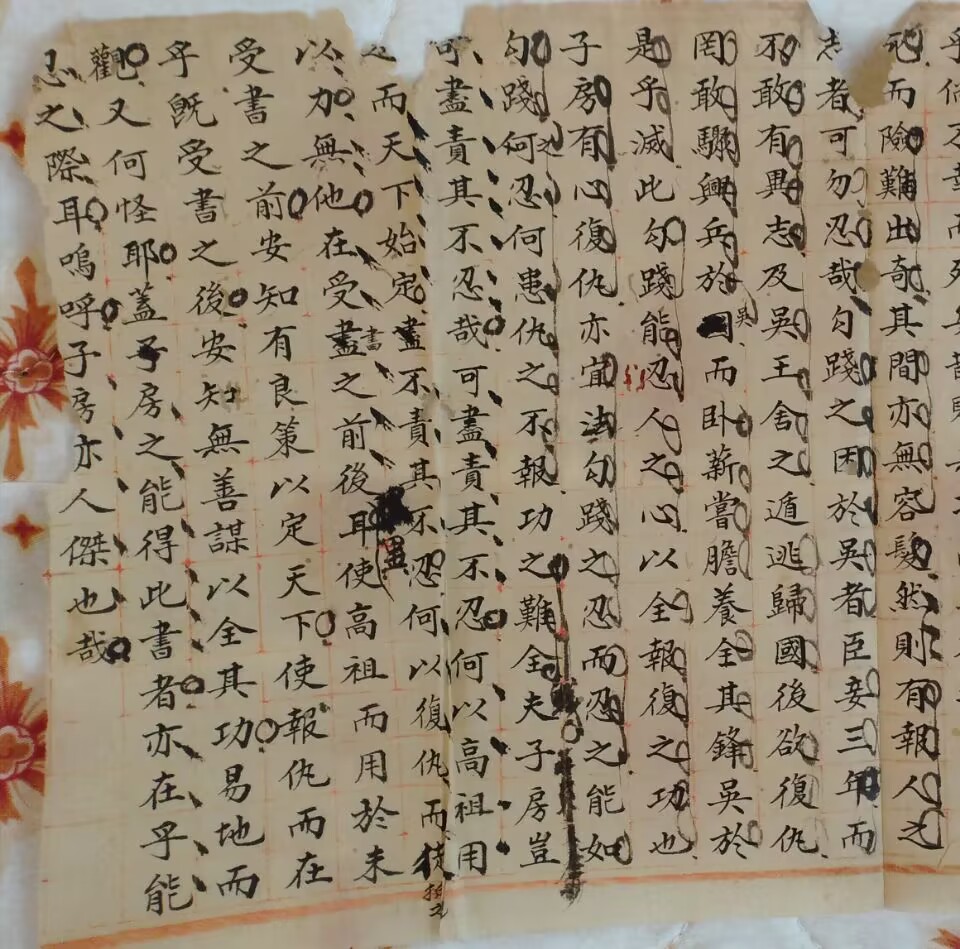 死而險難出奇其間亦無容髮然則有報人之
志者可勿忍哉勾踐之困於吳者臣妾三年而
不敢有異志及吳王舍之遁逃歸國後欲復仇
罔敢驟興兵於吳而卧薪嘗膽養全其鋒吳於
是乎滅此勾踐能忍人之心以全報復之功也
子房有心復仇亦宜法勾踐之忍而忍之能如
勾踐何之忍何患仇之不報功之難全夫子房豈
可盡責其不忍哉可盡責其不忍何以高祖用
之而天下始定盡不責其不忍何以復仇而徒
以力無他在受盡書之前後耳使高祖而用於未
受書之前安知有良策以定天下使報仇而在
乎旣受書之後安知無善謀以全其功易地而
觀又何怪耶蓋子房之能得此書者亦在乎能
忍之際耳嗚呼子房亦人傑也哉